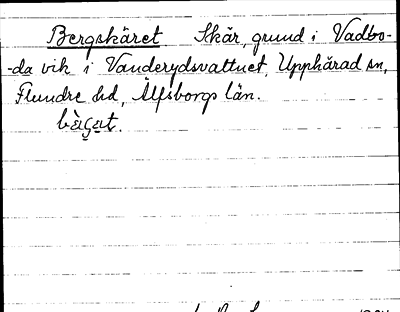 Bergskäret Skär, grund i Vadbo-
-da vik i Vanderydsvattnet, Upphärad sn,
Flundre hd, Älfsborgs län.